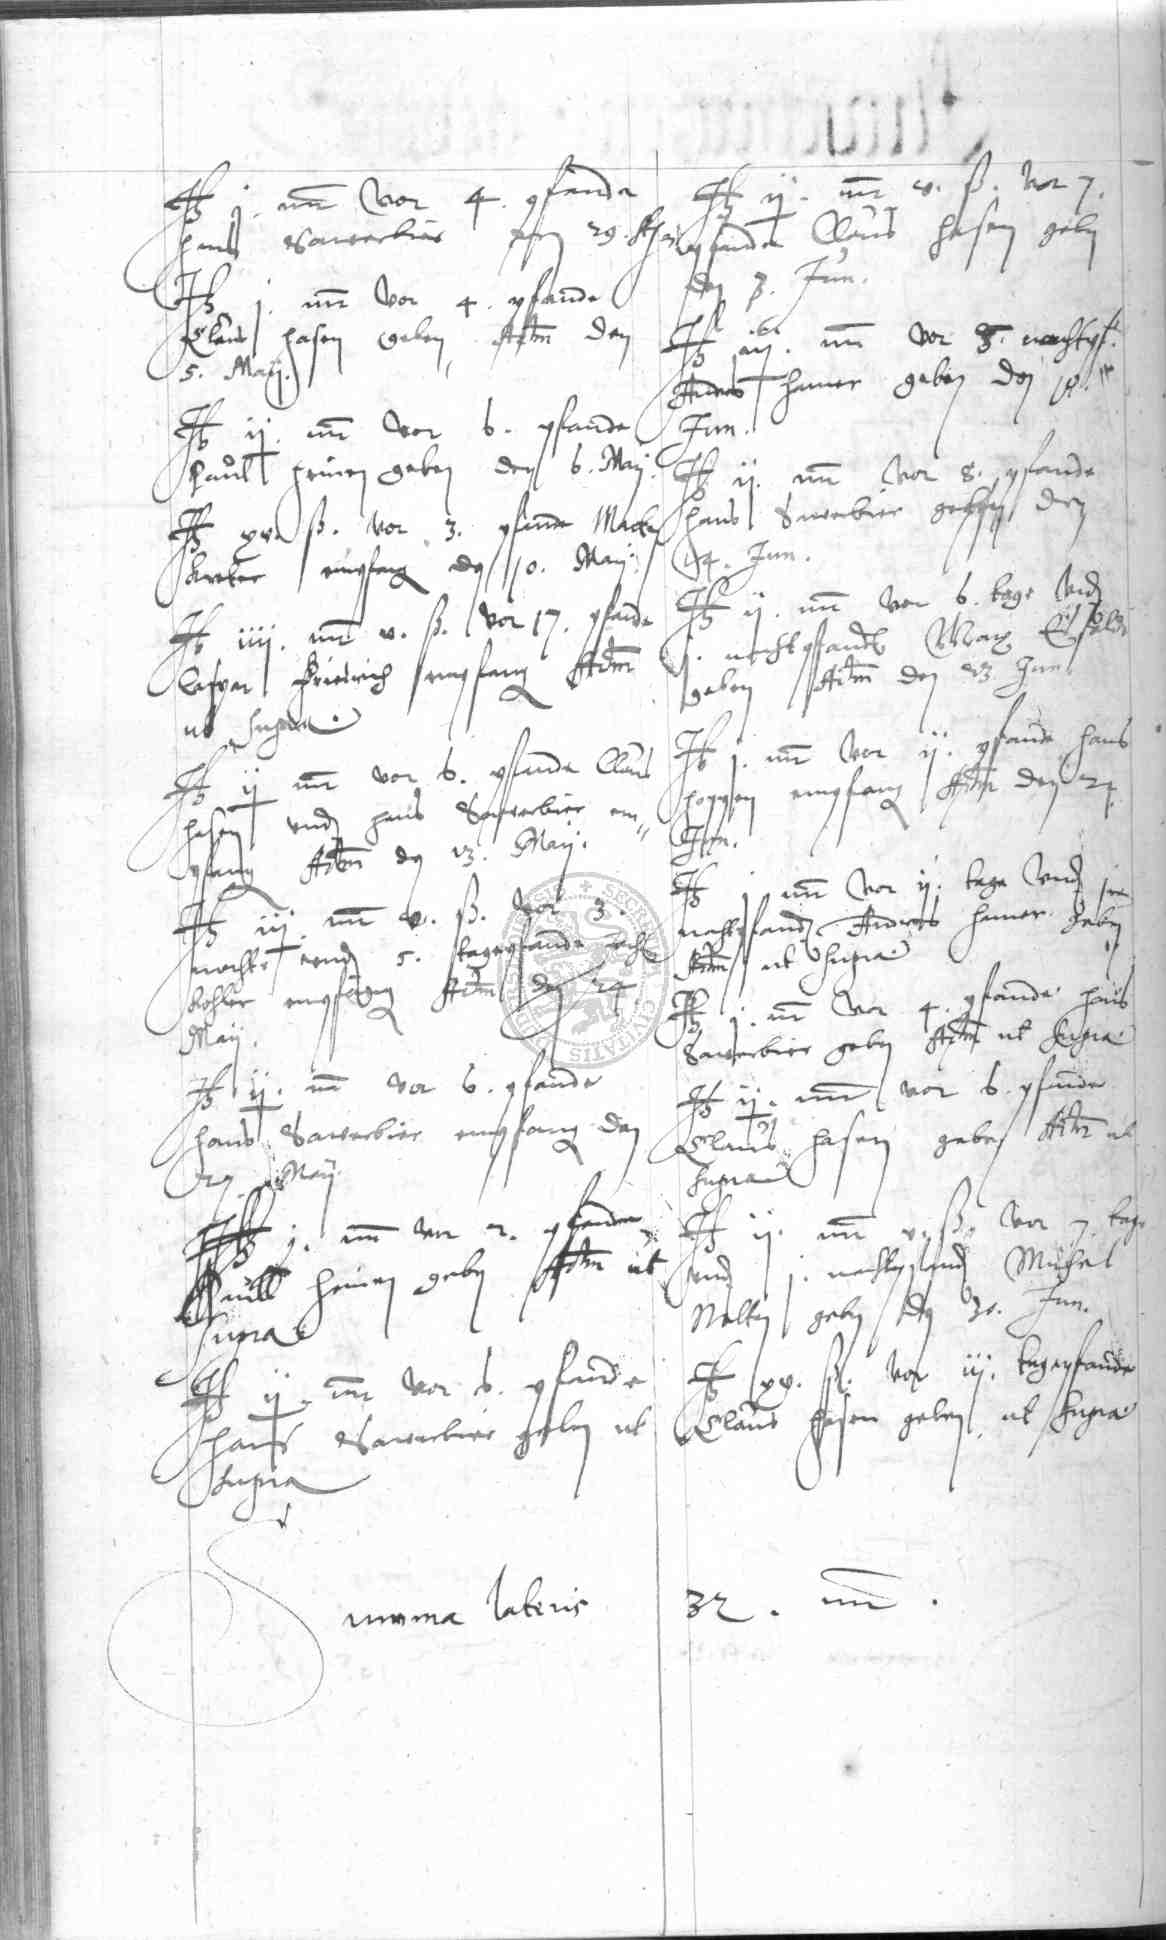 It j. mr vor 4. pfande
hans Sawerbier den 29. Apr.
It j. mr vor 4. pfande
Claus hasen geben Actum den
5. Maij.
It ij. mr vor 6. pfande
Paul heinen geben den 6. Maij.
It xv ß. vor 3. pfande
empfang den 10. Maij.
It iiij. mr v. ß. vor 17. pfande
Caspar Friedrich empfang Actum
ut Supra.
It ij mr vor 6. pfande Claus
hasen und hans Sawerbier em=
pfang Actum den 13. Maij.
It iij. mr v. ß. vor 3.
nachts und 5. tagepfande
empfang Actum den 24.
Maij.
It ij. mr vor 6. pfande
hans Sawerbier empfang den
27. Maij
It j. mr vor 2. pfande
Paull heinen geben Actum ut
Supra
It ij. mr vor 6. pfande
hans Sawerbier geben ut
Supra
It ij. mr v. ß. vor 7.
pfande Claus hasen geben
den 3. Jun.
It iij. mr vor nachtpf.
Andres hamer geben den
Jun.
It ij. mr vor 8. pfande
hans Sawerbier geben den
14. Jun.
It ij. mr vor 6. tage und
j. nachtpfande
geben Actum den 23. Jun
It j. mr vor ij. pfande hans
hoppen empfang Actum den 27
Jun.
It j mr vor ij. tage und
nachtpfand Andres hamer geben
Actum ut Supra
It j. mr vor 4. pfande hans
Sawerbier geben Actum ut Supra
It ij. mr vor 6. pfande
Claus hasen geben Actum ut
Supra
It ij. mr v. ß. vor 7 tage
und j. nachtpfand Michel
geben den 30. Jun.
It xv. ß. vor iij. tagepfande
Claus hasen geben ut Supra
Summa lateris 32. mr.